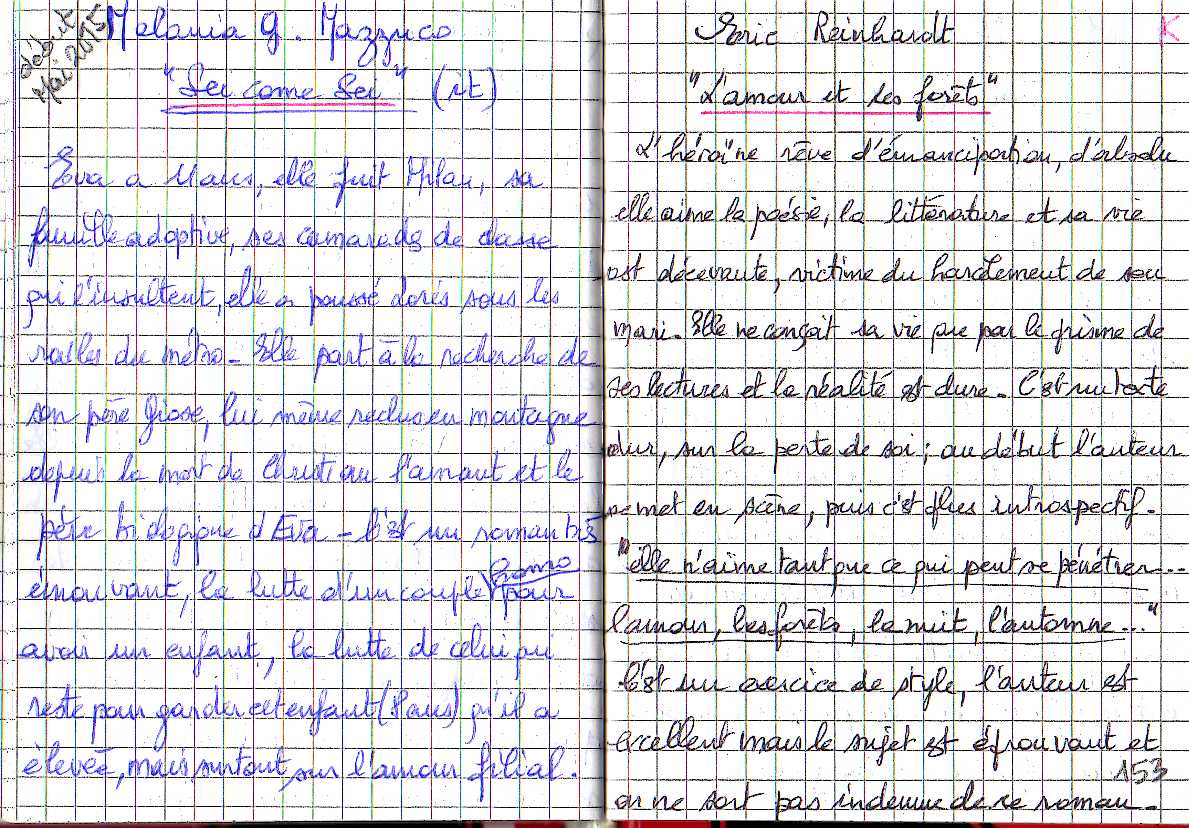 début
Mai 2015
Melania G. Mazzuco
"Sei come Sei" (it)
Eva a 11 ans, elle fuit Milan, sa
famille adoptive, ses camarades de classe
qui l'insultent, elle a poussé Loris sous les
railes du métro - Elle part à la recherche de
son père Giose, lui même reclus en montagne
depuis la mort de Christian l'amant et le
père biologique d'Eva - C'est un roman très
émouvant, la lutte d'un couple homo pour
avoir un enfant, la lutte de celui qui
reste pour garder cet enfant (11 ans) qu'il a
élevée, mais surtout, sur l'amour filial.
K
Eric Reinhardt
"L'amour et les forêts"
L'héroïne rêve d'émancipation, d'absolu
elle aime la poésie, la littérature et sa vie
est décevante, victime du harcèlement de son
mari. Elle ne conçoit sa vie que par le prisme de
ses lectures et la réalité est dure. C'est un texte
dur, sur la perte de soi ; au début l'auteur
se met en scène, puis c'est plus introspectif.
"elle n'aime tant que ce qui peut se pénétrer...
l'amour, les forêts, la nuit, l'automne..."
C'est un exercice de style, l'auteur est
excellent mais le sujet est éprouvant et
on ne sort pas indemne de ce roman.
153